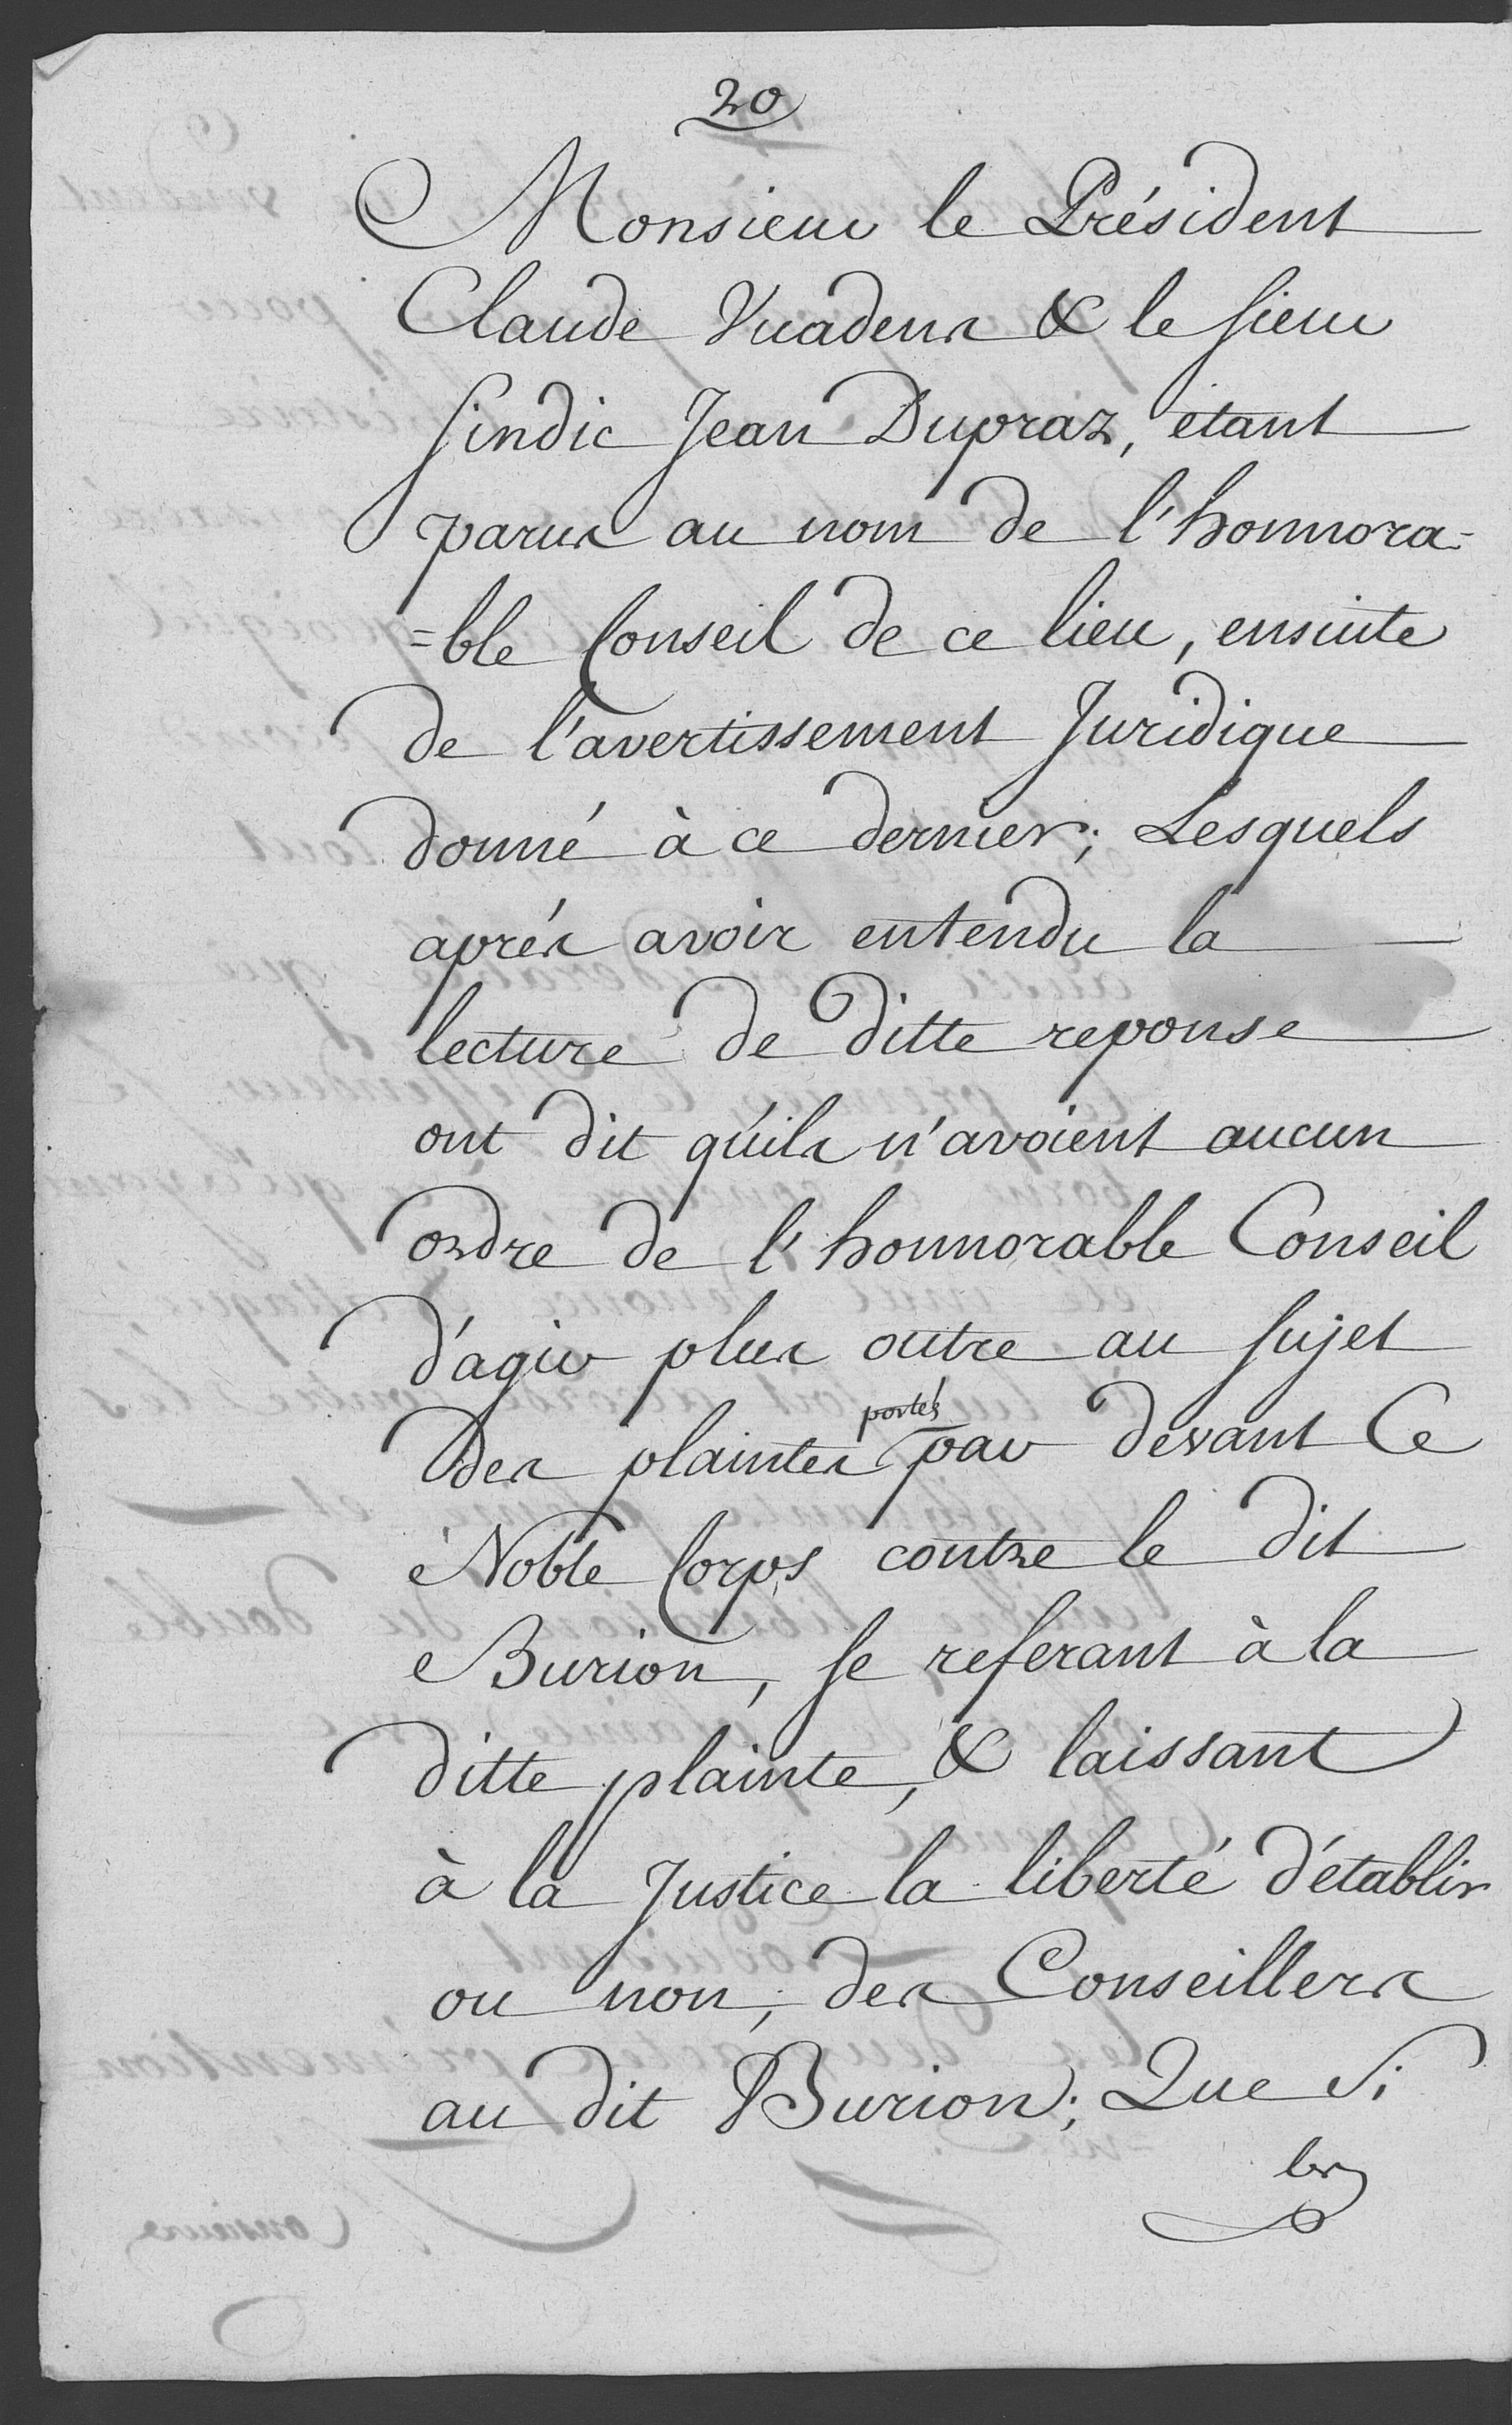 20
Monsieur le Président
Claude Vuadens & le sieur
sindic Jean Dupraz, etant
parus au nom de l'honnora=
=ble Conseil de ce lieu, ensuite
de l'avertissement Juridique
donné à ce dernier; Lesquels
aprés avoir entendu la
lecture de ditte reponse
ont dit qu'ils n'avoient aucun
ordre de l'honnorable Conseil
d'agir plus outre au sujet
des plaintes portés par devant Ce
Noble Corps contre le dit
Burion, se referant à la
ditte plainte, & laissant
à la Justice la liberté d'établir
ou non, des Conseillers
au dit Burion; Que Si
les